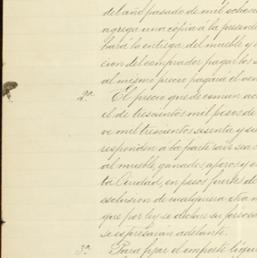 del año pasado de mil ochocie
agrega una copia á la presente
hará la entrega del mueble y
cion del comprador pagar los
al mismo precio pagará el
2ª El precio que de comun
el de trescientos mil pesos de
ve mil trescientos sesenta y
responden a la parte
al mueble, ganados, aperos y
ta Ciudad, en pesos fuertes de
esclusion de cualquiera otra
que por ley se declare su forzosa
se espresarán adelante.
3ª Para fijar el importe líqui